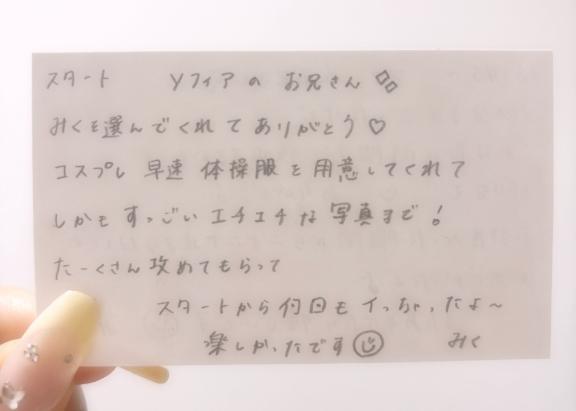 スタート Yフィアの お兄さん
みくを選んでくれてありがとう♡
コスプレ 早速 体操服を用意してくれて
しかも すっごい エチエチな 写真まで!
たーくさん攻めてもらって
スタートから何回もイっちゃったよ〜
楽しかったです☺ みく